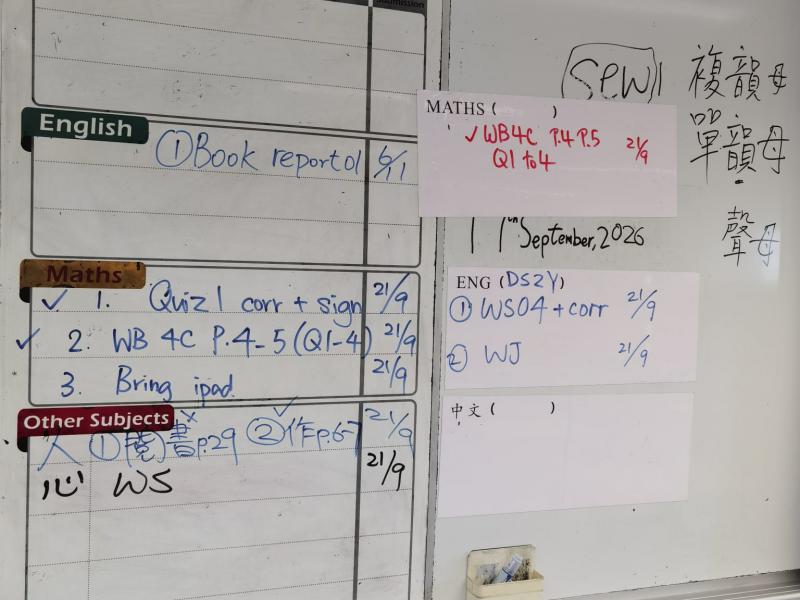 Submission
English
① Book report 01 6/11
Maths
✓ 1. Quiz 1 corr + sign 21/9
✓ 2. WB 4C P.4-5 (Q1-4) 21/9
3. Bring ipad. 21/9
Other Subjects
人 ①(閱)書p.29 ②作p.6-7 21/9
心 WS 21/9
SPW1
MATHS ( )
✓ WB4C P.4 P.5 21/9
Q1 to 4
17th September, 2026
ENG (DS2Y)
① WS04 + corr 21/9
② WJ 21/9
中文 ( )
複韻母
單韻母
聲母